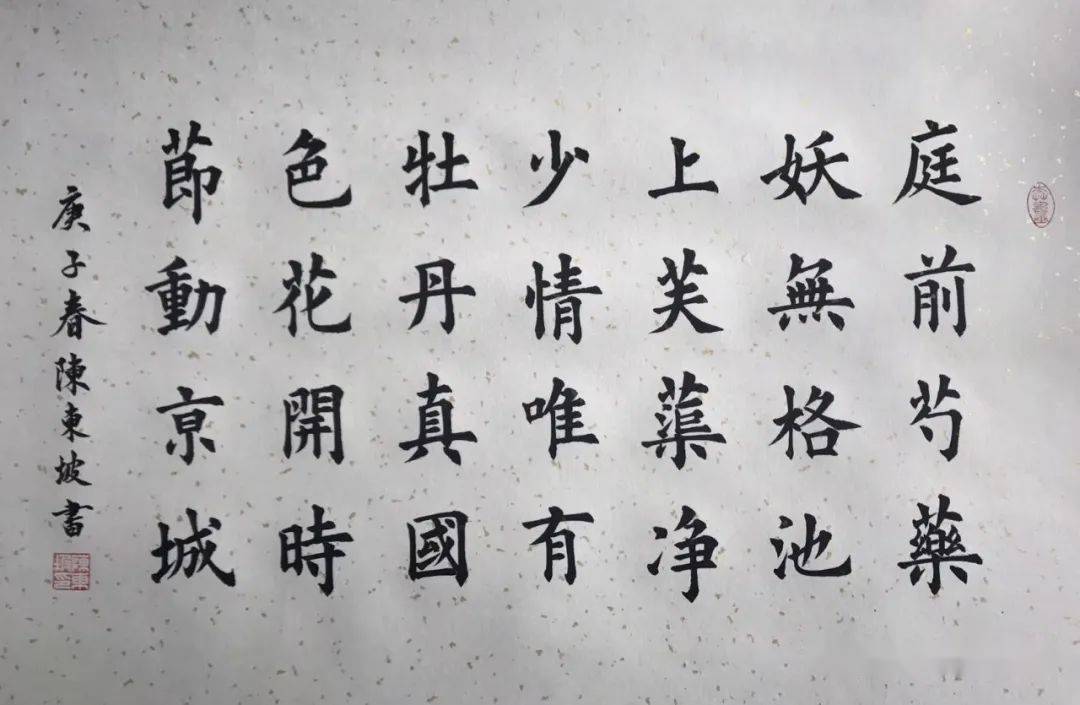 庭前芍藥
妖無格池
上芙蕖净
少情唯有
牡丹真國
色花開時
莭動京城
庚子春陳東坡書